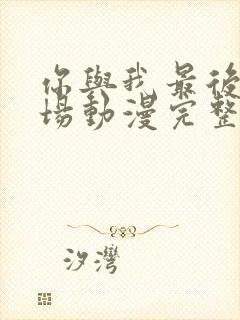 你與我最後
場動漫完整
汐灣